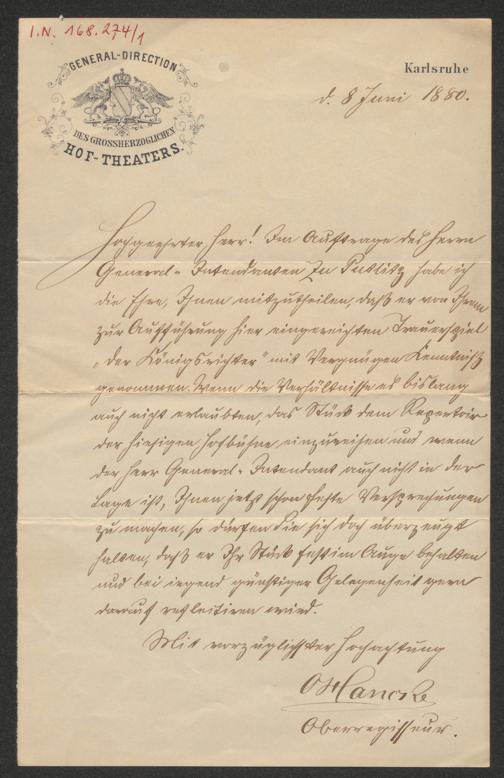 I.N. 168.274/1
GENERAL-DIRECTION
DES GROSSHERZOGLICHEN
HOF-THEATERS.
Karlsruhe
d. 8 Juni 1880.
Hochgeehrter Herr! Im Auftrage des Herrn
General-Intendanten Zu Putlitz habe ich
die Ehre, Ihnen mitzutheilen, daß er von Ihrem
zur Aufführung hier eingereichten Trauerspiel
„Der Königsrichter" mit Vergnügen Kenntniß
genommen. Wenn die Verhältnisse es bislang
auch nicht erlaubten, das Stück dem Repertoir
der hiesigen Hofbühne einzureihen und wenn
der Herr General-Intendant auch nicht in der
Lage ist, Ihnen jetzt schon feste Versprechungen
zu machen, so dürfen Sie sich doch überzeugt
halten, daß er Ihr Stück fest im Auge behalten
und bei irgend günstiger Gelegenheit gern
darauf reflectiren wird.
Mit vorzüglichster Hochachtung
Hancke
Oberregisseur.